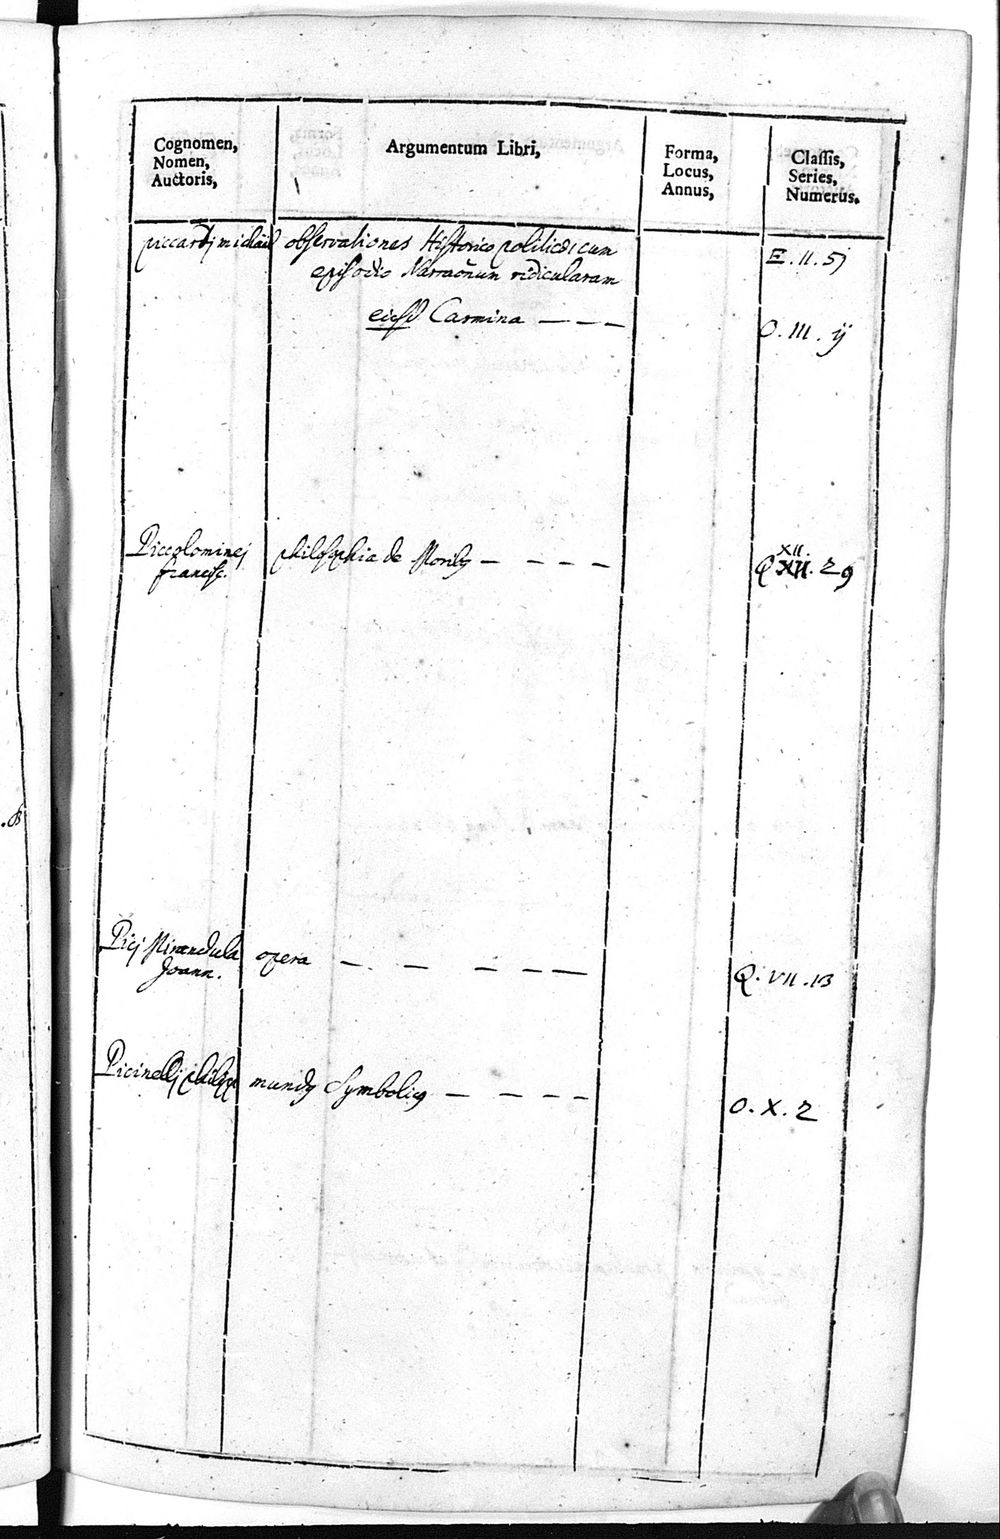 Cognomen,
Nomen,
Auctoris,
Argumentum Libri,
Forma,
Locus,
Annus,
Classis,
Series,
Numerus.
piccardj michael observationes Historico politicae cum E. II. 5)
episodio Narraōnum ridicularam
eiusd Carmina — — — O. III. ij
Piccolominej philosophia de Moribq — — — — XII.
francisc. Q XII. 29
Picj Mirandula opera — . — — — — Q. VII. 13
Joann.
Picinellj philipp mundq Symbolicq — — — — O. X. 2